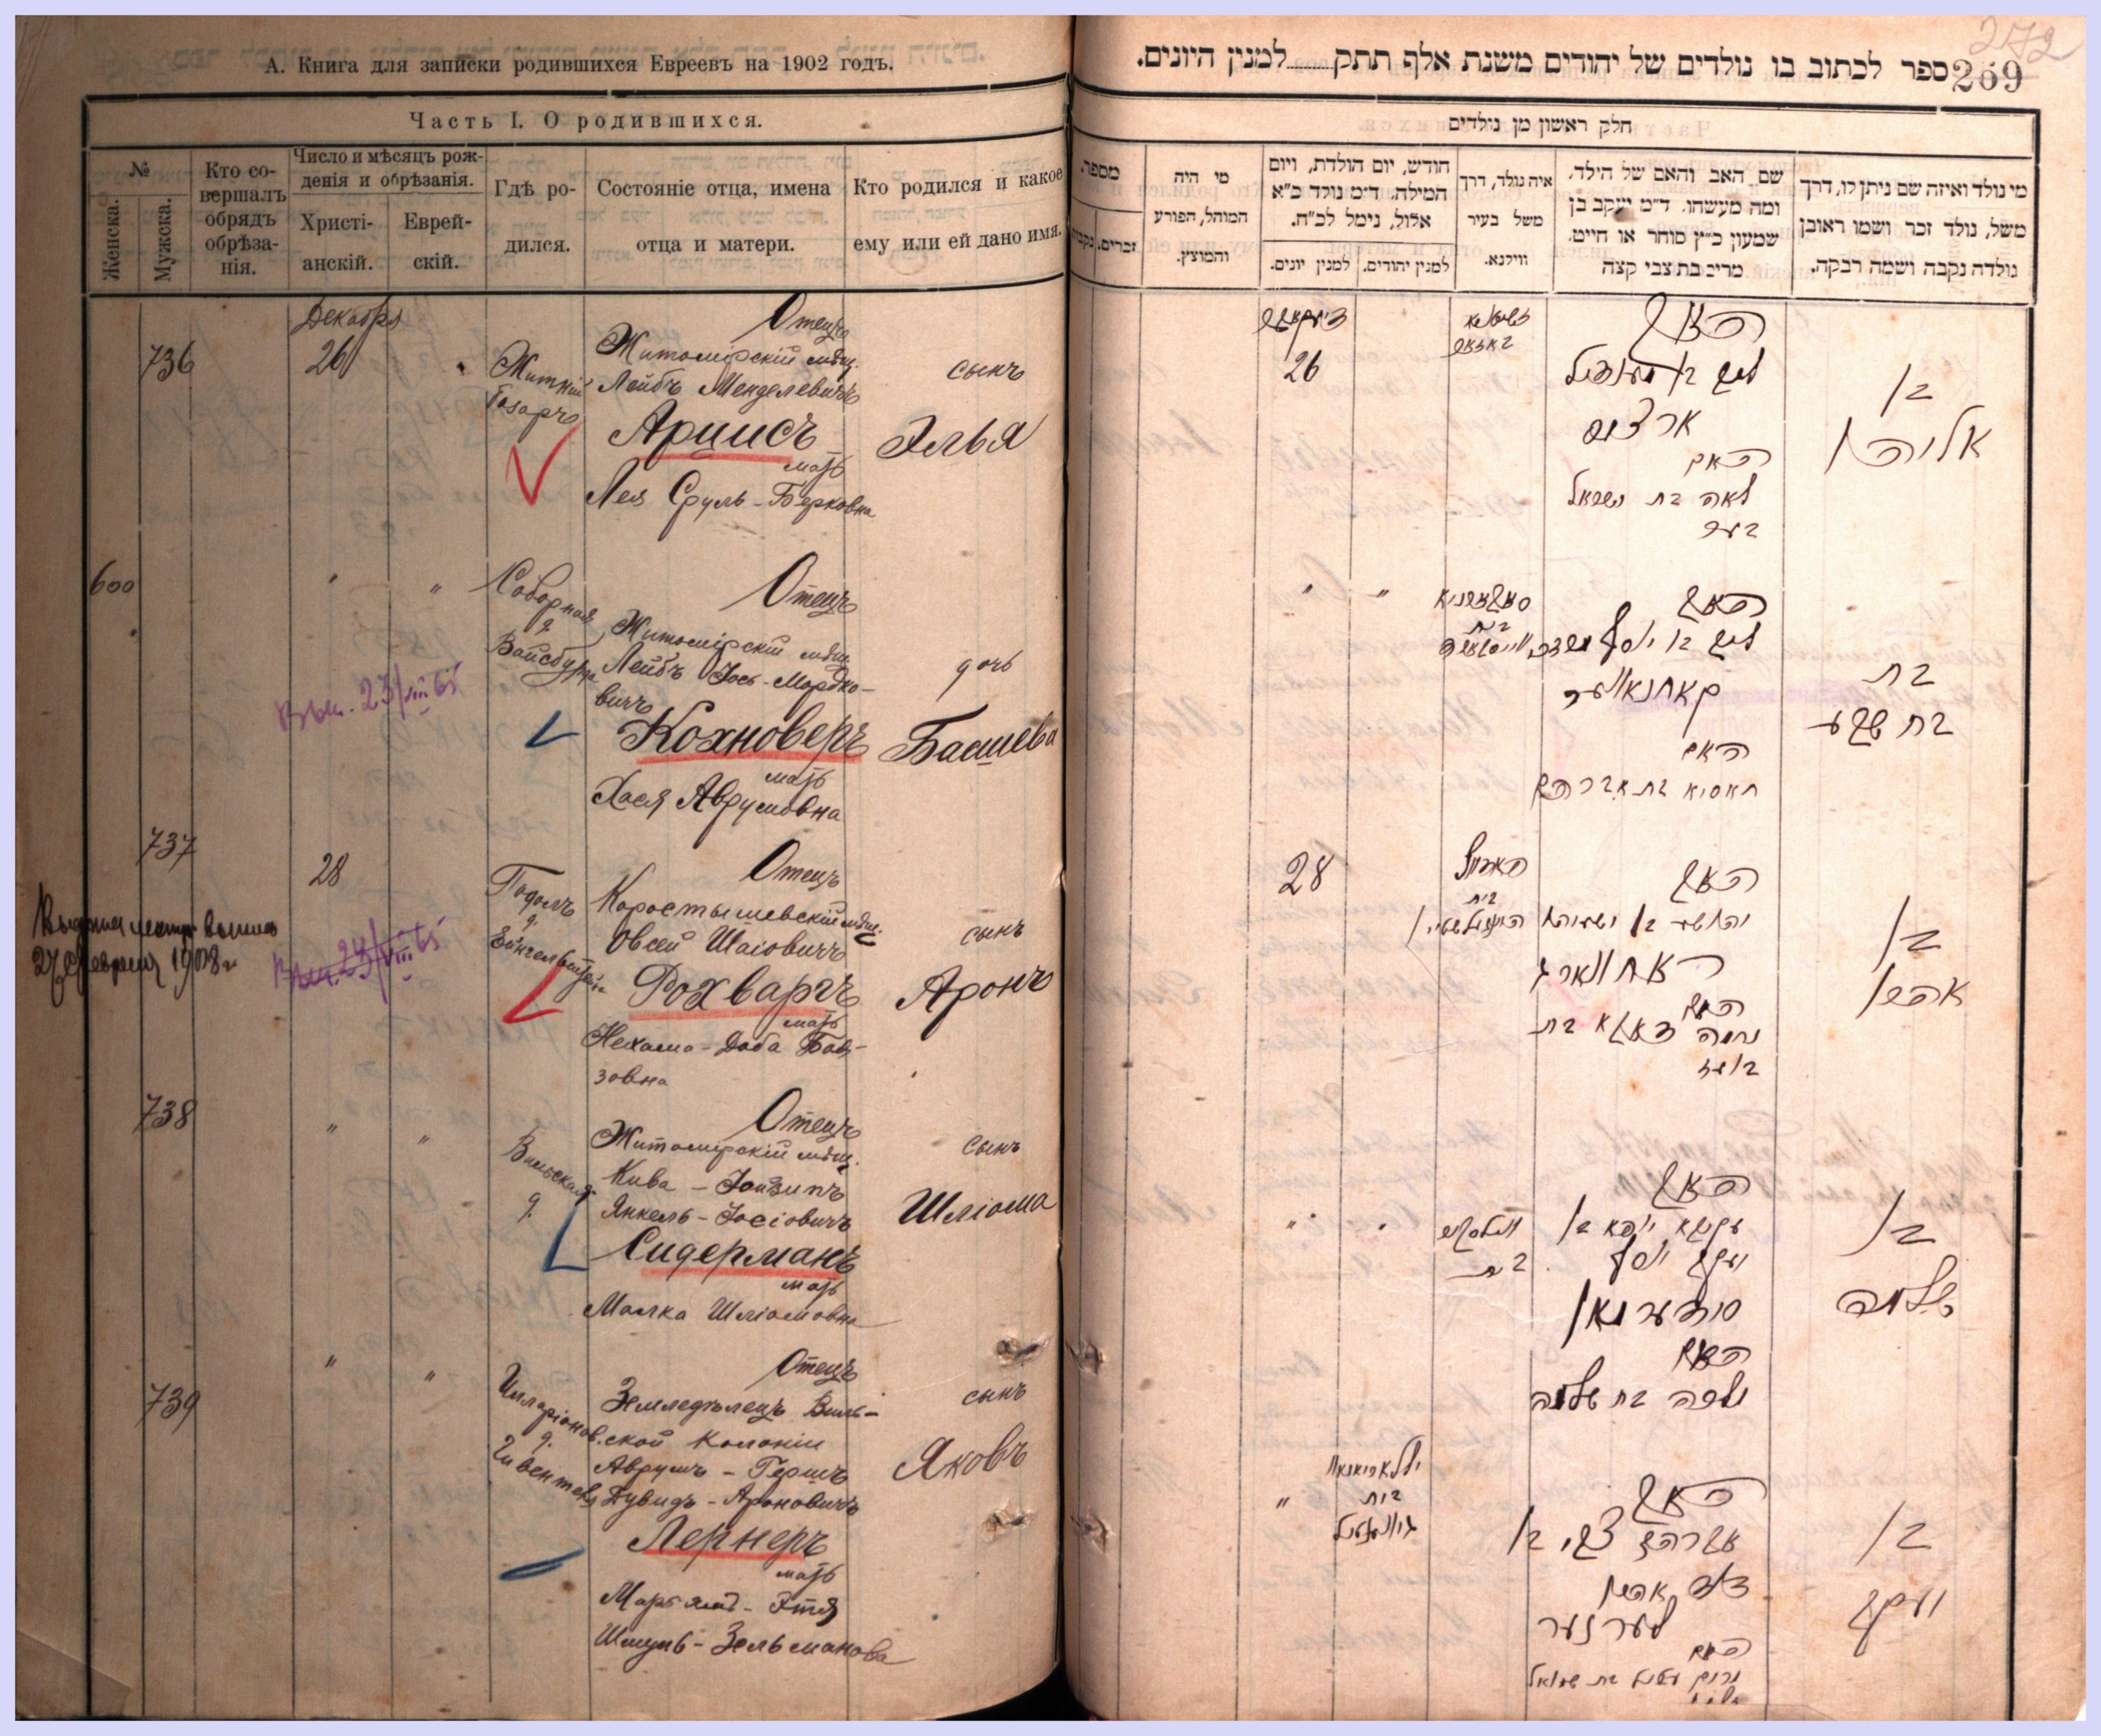 А. Книга для записки родившихся Евреевъ на 1902 годъ.
Часть I. О родившихся.
№
Женска.
Мужска.
Кто со-
вершалъ
обрядъ
обрѣза-
нія.
Число и мѣсяцъ рож-
денія и обрѣзанія.
Христі-
анскій.
Еврей-
скій.
Гдѣ ро-
дился.
Состояніе отца, имена
отца и матери.
Кто родился и какое
ему или ей дано имя.
736
Декабря
26
Житній
Базаръ
Отецъ
Житомірскій мѣщ.
Лейбъ Менделевичъ
Арцисъ
мать
Лея Сруль-Берковна
сынъ
Элья
600
"
"
Соборная
д.
Вайсбурга
Отецъ
Житомірскій мѣщ.
Лейбъ Іось-Мордко-
вичъ
Кохноверъ
мать
Хася Аврумовна
дочь
Басшева
23/VIII 65
737
28
Подолъ
д.
Отецъ
Коростышевскій мѣщ.
Овсей Шаіовичъ
Рохваргъ
мать
Нехама-Доба Бой-
зовна
сынъ
Аронъ
27 февраля 1908 г.
23/VIII 65
738
"
"
Вильская
д.
Отецъ
Житомірскій мѣщ.
Кива-Іойзипъ
Янкель-Іосіовичъ
Сидерманъ
мать
Малка Шліомовна
сынъ
Шліома
739
"
"
Илларіонов.
д.
Отецъ
Земледѣлецъ Виль-
ской колоніи
Аврумъ-Гершъ
Дувидъ-Ароновичъ
Лернеръ
мать
Марьямъ-Этя
Шмуль-Зельманова
сынъ
Яковъ
272
269
ספר לכתוב בו נולדים של יהודים משנת אלף תתק........למנין היונים.
חלק ראשון מן נולדים
מספר.
זכרים.
נקבות
מי היה
המוהל, הפורע
והמוצץ.
חודש, יום הולדת, ויום
המילה. ד״מ נולד כ״א
אלול, נימל לכ״ח.
למנין יונים.
למנין יהודים.
איה נולד, דרך
משל בעיר
ווילנא.
שם האב והאם של הילד,
ומה מעשהו. ד״מ יעקב בן
שמעון כ״ץ סוחר או חייט.
מרים בת צבי קצה
מי נולד ואיזה שם ניתן לו, דרך
משל, נולד זכר ושמו ראובן
נולדה נקבה ושמה רבקה.
26
האב
ארציס
האם
לאה בת ישראל
בער
בן
אליהו
"
"
בית
האב
ליב בן יוסף מרדכי
קאחנאווער
האם
חאסיא בת אברהם
בת
בת שבע
28
בית
האב
יהושע בן ישעיהו
ראחווארג
האם
נחמה דאבא בת
בן
אהרן
"
בית
האב
עקיבא יוזפא בן
יעקב יוסף
סידערמאן
האם
מלכה בת שלמה
בן
שלמה
"
בית
האב
אברהם צבי בן
דוד אהרן
לערנער
האם
מרים עטיל בת שמואל
בן
יעקב